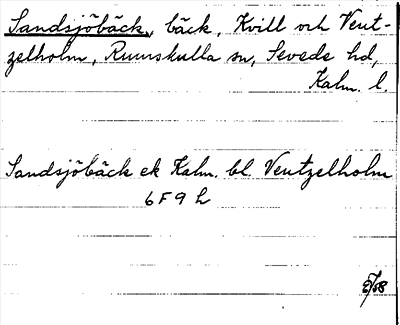 Sandsjöbäck, bäck, Kvill och Vent-
zelholm, Rumskulla sn, Sevede hd,
Kalm. l.
Sandsjöbäck ek Kalm. bl. Ventzelholm
6F9h